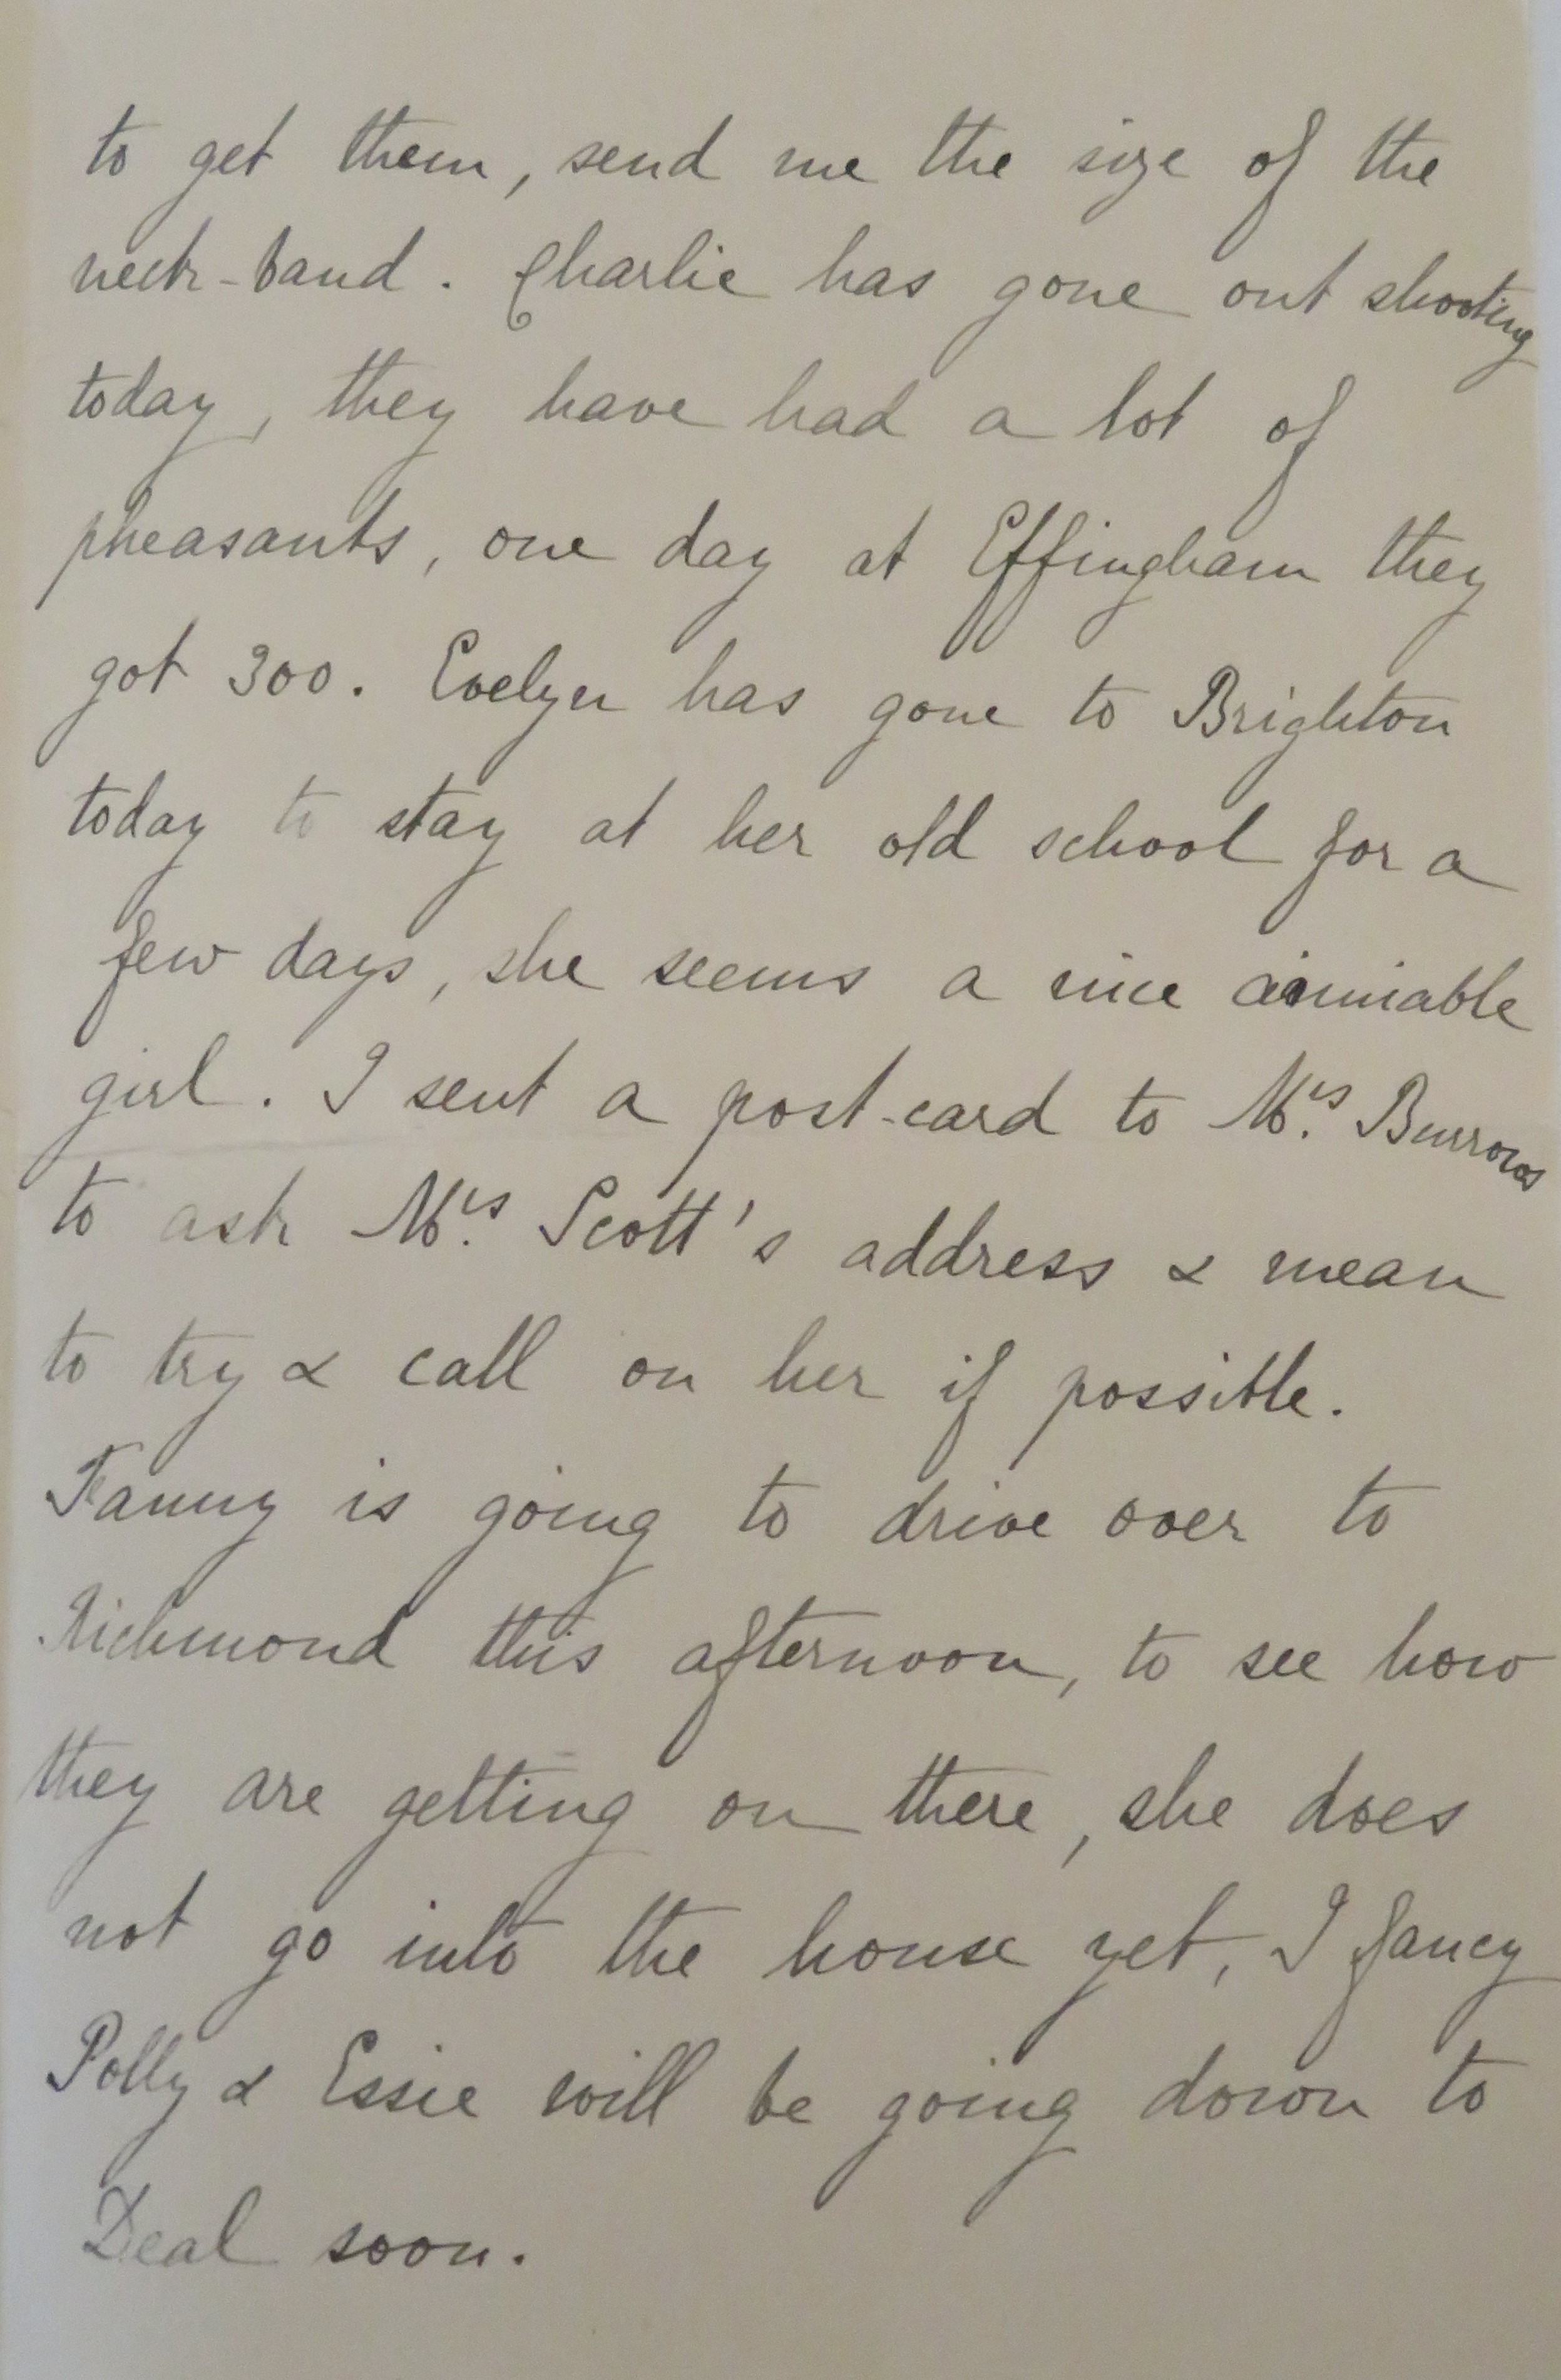 to get them, send me the size of the
neck-band. Charlie has gone out shooting
today, they have had a lot of
pheasants, one day at Effingham they
got 300. Evelyn has gone to Brighton
today to stay at her old school for a
few days, she seems a nice aimiable
girl. I sent a post-card to Mrs. Burrows
to ask Mrs. Scott's address & mean
to try & call on her if possible.
Fanny is going to drive over to
Richmond this afternoon, to see how
they are getting on there, she does
not go into the house yet, I fancy
Polly & Essie will be going down to
Deal soon.